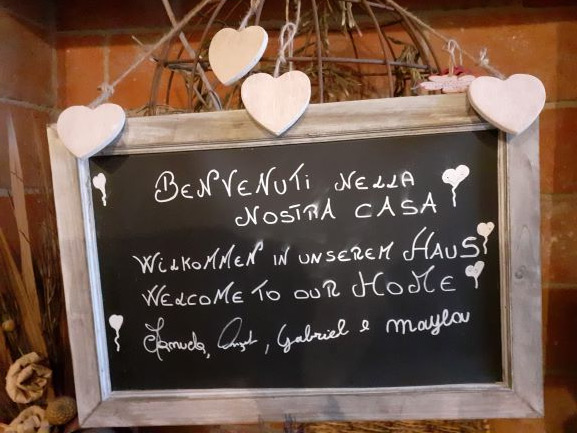 BENVENUTI NELLA
NOSTRA CASA
WILKOMMEN IN UNSEREM HAUS
WELCOME TO OUR HOME
Gabriel e Mayla